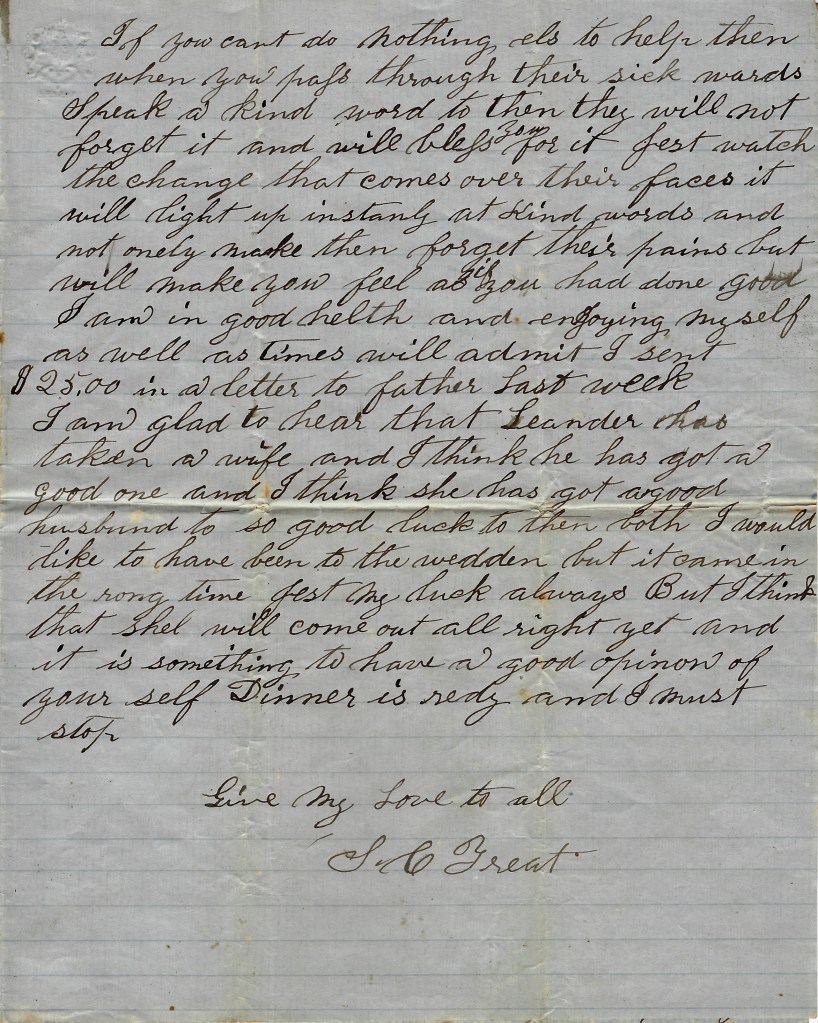 If you cant do nothing els to help then
when you pass through their sick wards
Speak a kind word to then they will not
forget it and will bless you for it jest watch
the change that comes over their faces it
will light up instanly at kind words and
not onely make then forget their pains but
will make you feel as if you had done good
I am in good helth and enjoying myself
as well as times will admit I sent
$25,00 in a letter to father last week
I am glad to hear that Leander has
taken a wife and I think he has got a
good one and I think she has got a good
husbund to so good luck to then both I would
like to have been to the wedden but it came in
the rong time jest my luck always But I think
that Shel will come out all right yet and
it is something to have a good opinon of
your self Dinner is redy and I must
stop
Give my Love to all
S. C Treat